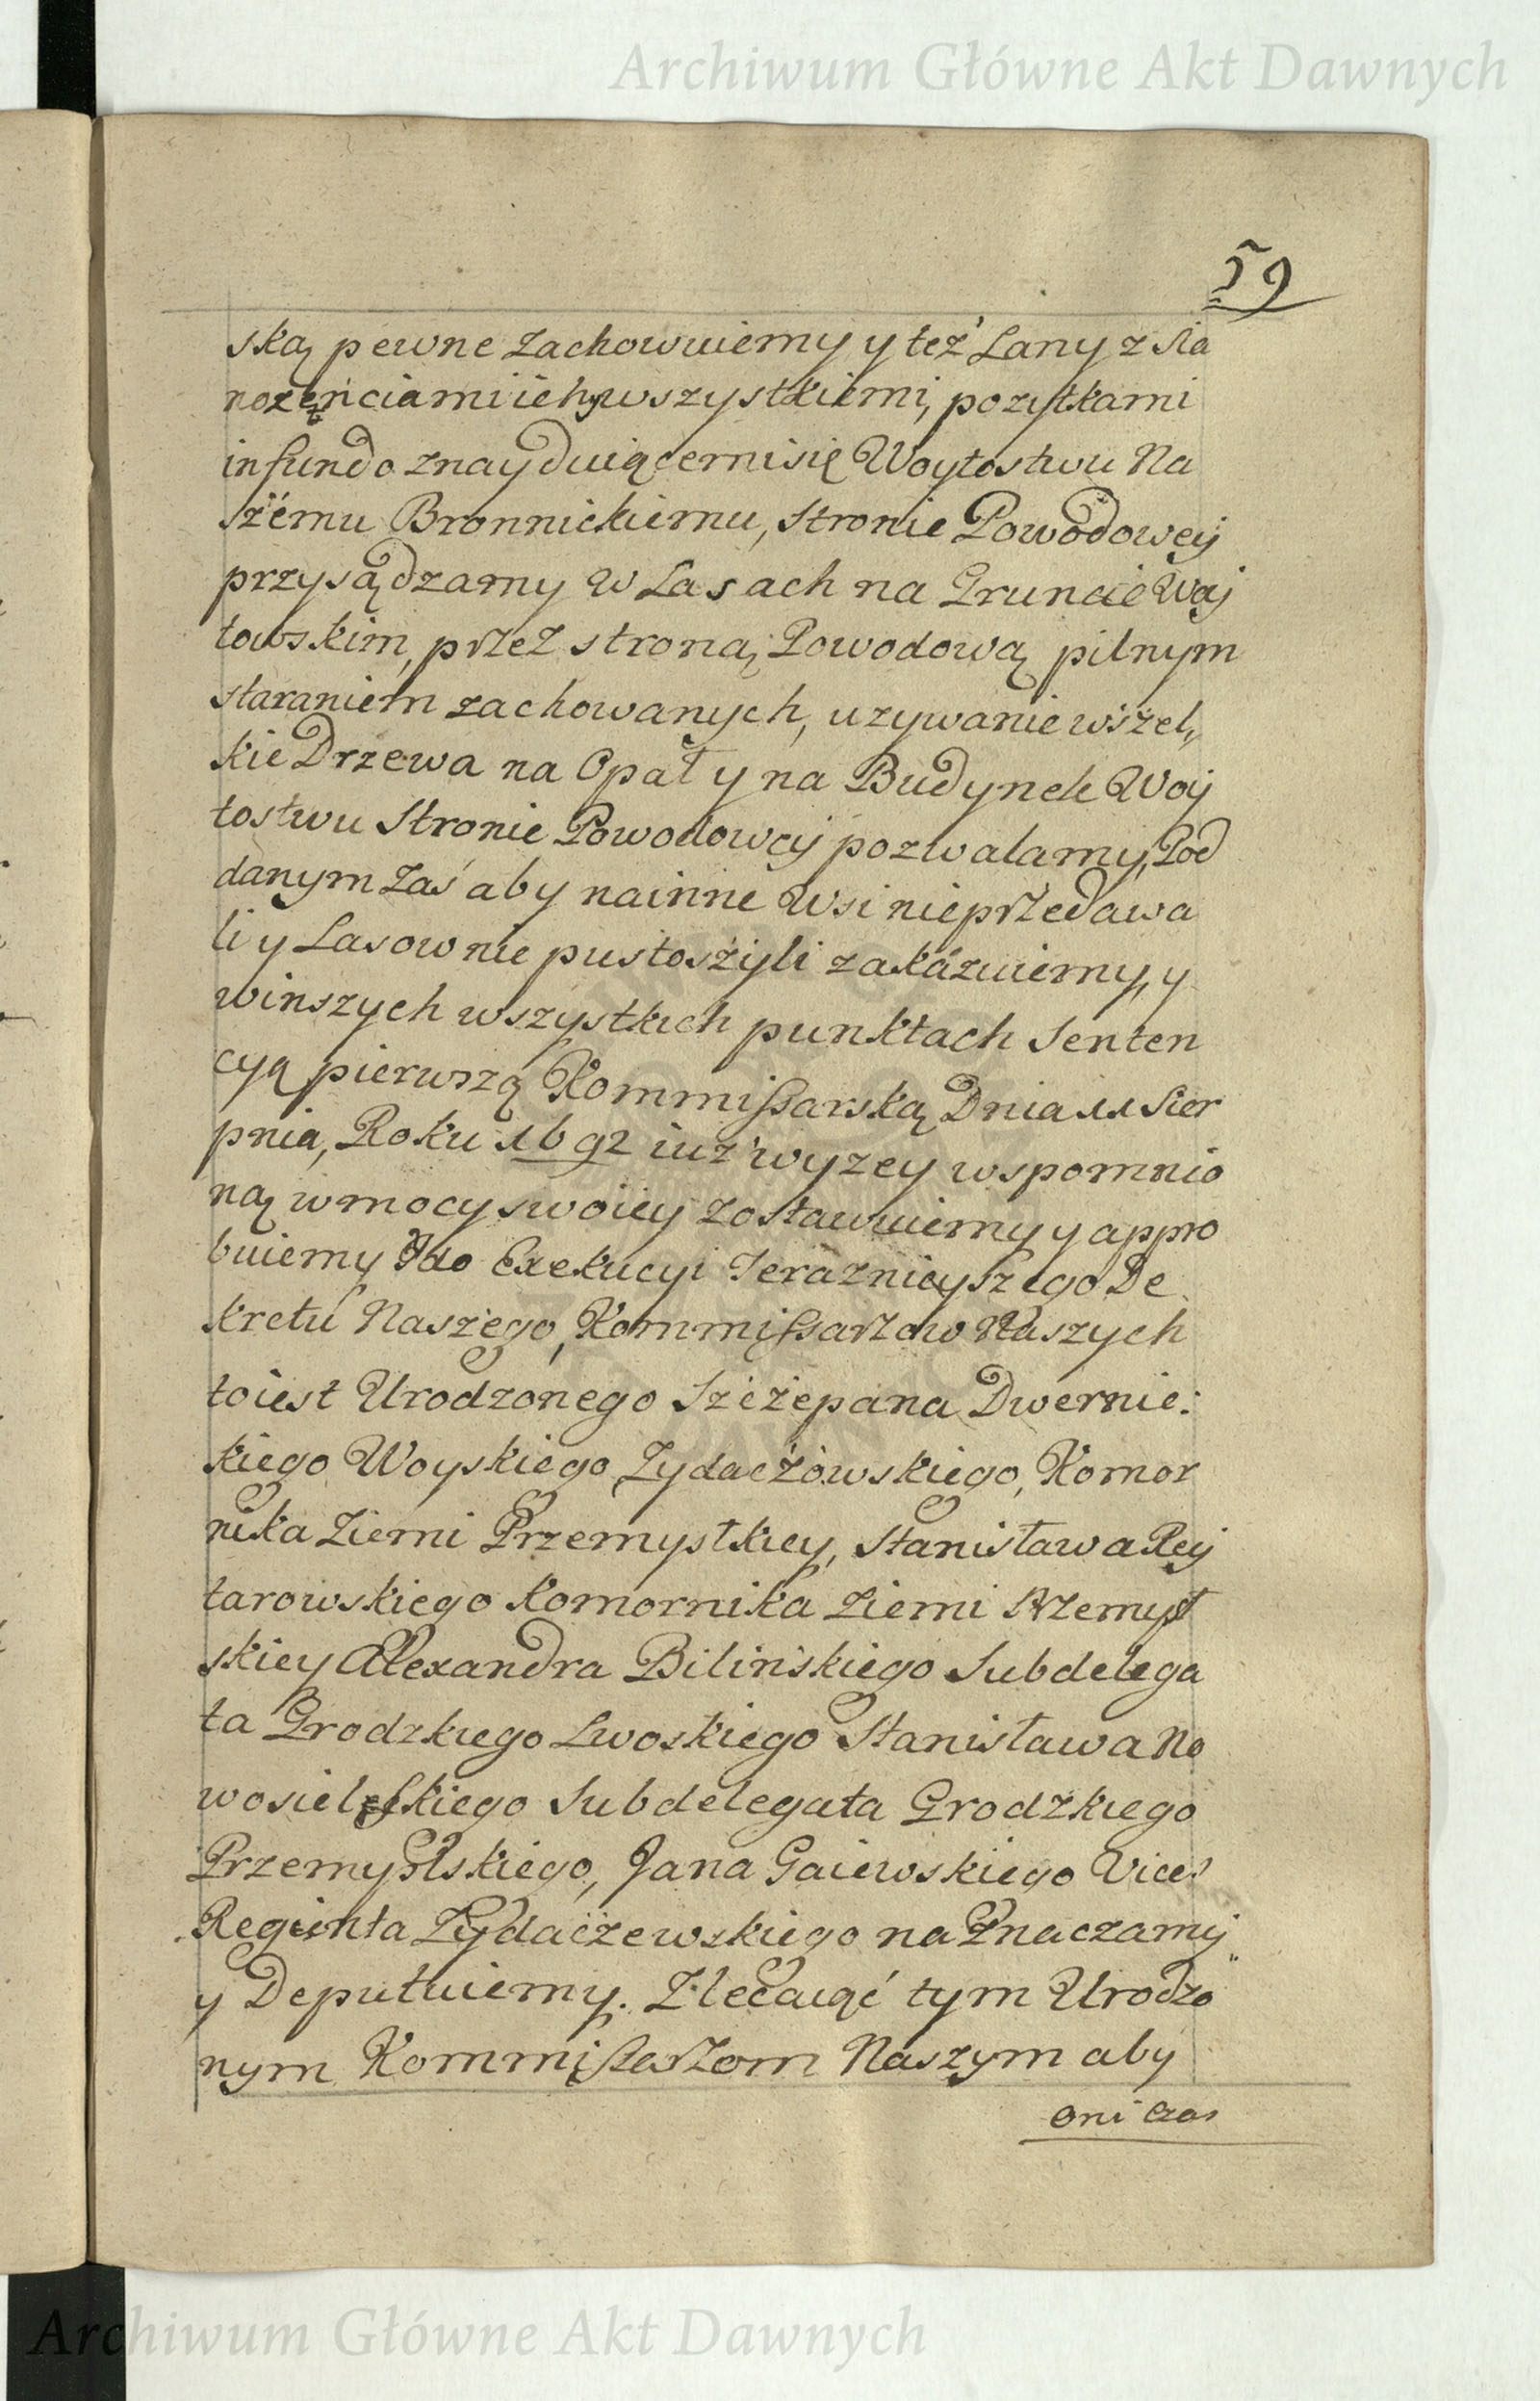 Archiwum Główne Akt Dawnych
59
ską pewne zachowuiemy y też Łany z Sia
nozęńciami ich y wszystkiemi, pozytkami
infundo znayduiącemi się Woytostwu Na
szemu Bronnickiemu, Stronie Powodowey
przysądzamy w Lasach na Gruncie Woj
towskim, przez stroną Powodową pilnym
staraniem zachowanych, uzywanie wszel„
kie Drzewa na Opał y na Budynek Woj
tostwu Stronie Powodowej pozwalamy, Pod
danym zaś aby na inne Wsi nieprzedawa
li y Lasow nie pustoszyli zakázuiemy, y
winszych wszystkich punktach Senten
cyą pierwszą Kommissarską Dnia 11 Sier
pnia, Roku 1692 iuż wyzey wspomnio
ną w mocy swoiey zostawuiemy y appro
buiemy do Exekucyi Teraznieyszego De
kretu Naszego, Kommissarzow Naszych
toiest Urodzonego Szczepana Dwernic:
kiego Woyskiego Zydaczowskiego, Komor
nika Ziemi Przemystkiey, Stanisława Rej
tarowskiego Komornika Ziemi Przemysł
skiey Alexandra Bilińskiego Subdelega
ta Grodzkiego Lwoskiego Stanisława No
wosielskiego Subdelegata Grodzkiego
Przemyślskiego, Jana Gaiewskiego Vice
Regienta Zydaczewskiego naznaczamy
y Deputuiemy. Zlecaiąc tym Urodzo„
nym Kommissarzom Naszym aby
oni czas
Archiwum Główne Akt Dawnych